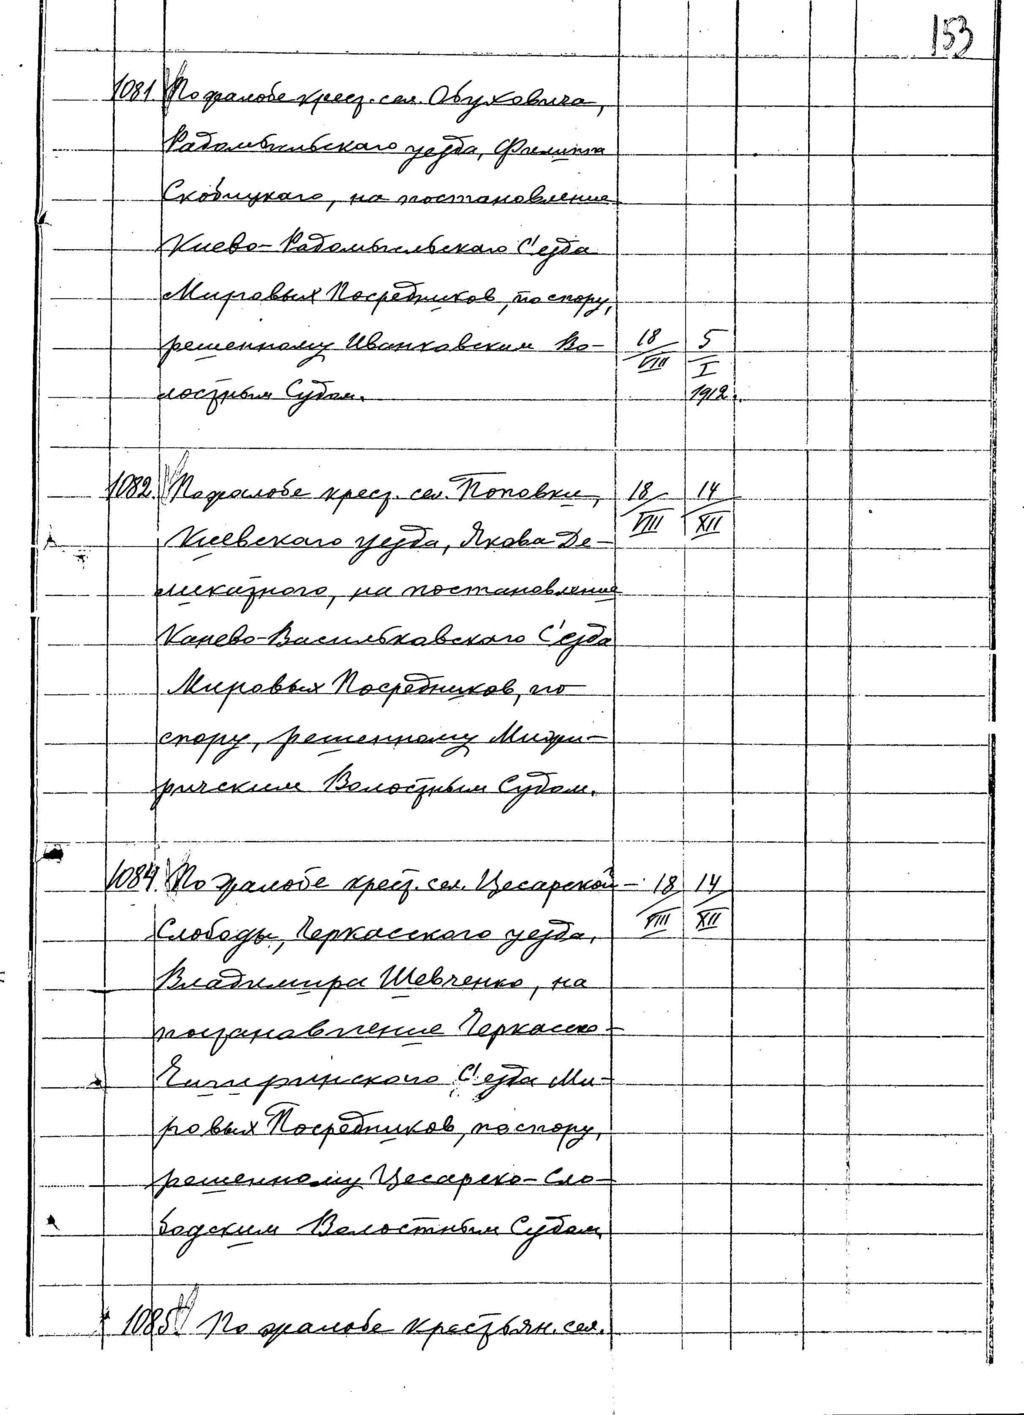 153
1081. По жалобе крест. сел. Обуховича,
Радомысльскаго уезда, Филиппа
Скобицкаго, на постановление
Киево-Радомысльскаго С'езда
Мировых Посредников, по спору,
решенному Иванковским Во- 18/VIII 5/I
лостным Судом. 1912.
1082. По жалобе крест. сел. Поповки, 18/VIII 14/XII
Киевскаго уезда, Якова Де-
ликатного, на постановление
Канево-Васильковскаго С'езда
Мировых Посредников, по
спору, решенному
Волостным Судом.
1084. По жалобе крест. сел. Цесарской- 18/VIII 14/XII
Слободы, Черкасского уезда,
Владимира Шевченко, на
постановление Черкасско-
Чигиринского С'езда Ми-
ровых Посредников, по спору,
решенному Цесарско-Сло-
бодским Волостным Судом
1085 По жалобе крестьян. сел.